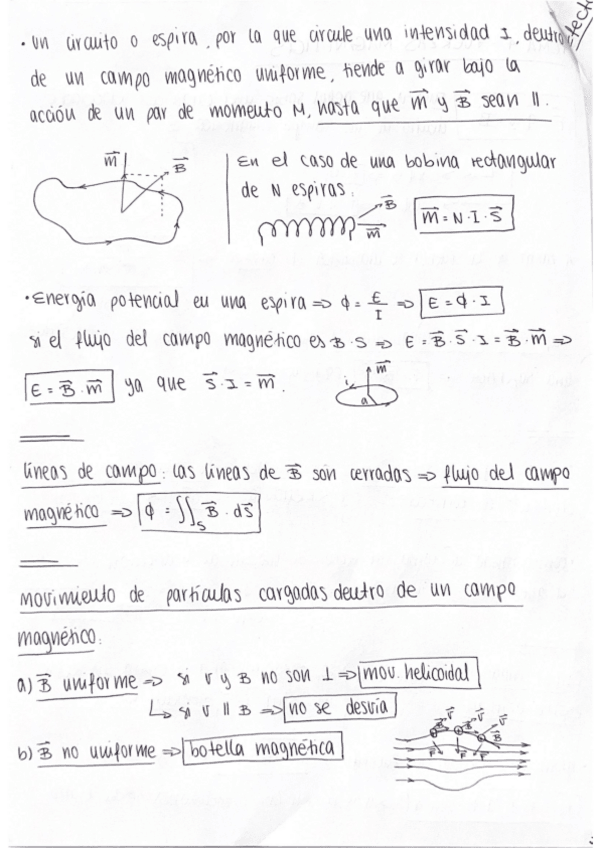 tect
• Un circuito o espira, por la que circule una intensidad I, dentro
de un campo magnético uniforme, tiende a girar bajo la
acción de un par de momento M, hasta que m⃗ y B⃗ sean ||.
m⃗ B⃗
En el caso de una bobina rectangular
de N espiras:
B⃗
m⃗
m⃗ = N·I·S⃗
• Energía potencial en una espira ⇒ ϕ = E/I ⇒ E = ϕ·I
si el flujo del campo magnético es B·S ⇒ E = B⃗·S⃗·I = B⃗·m⃗ ⇒
E = B⃗·m⃗ ya que S⃗·I = m⃗.
m⃗
i
a
líneas de campo: las líneas de B⃗ son cerradas ⇒ flujo del campo
magnético ⇒ ϕ = ∬_S B⃗·dS⃗
movimiento de partículas cargadas dentro de un campo
magnético:
a) B⃗ uniforme ⇒ si v y B no son ⊥ ⇒ mov. helicoidal
↳ si v || B ⇒ no se desvía
b) B⃗ no uniforme ⇒ botella magnética
v⃗ v⃗ v⃗
B⃗ B⃗
F F F